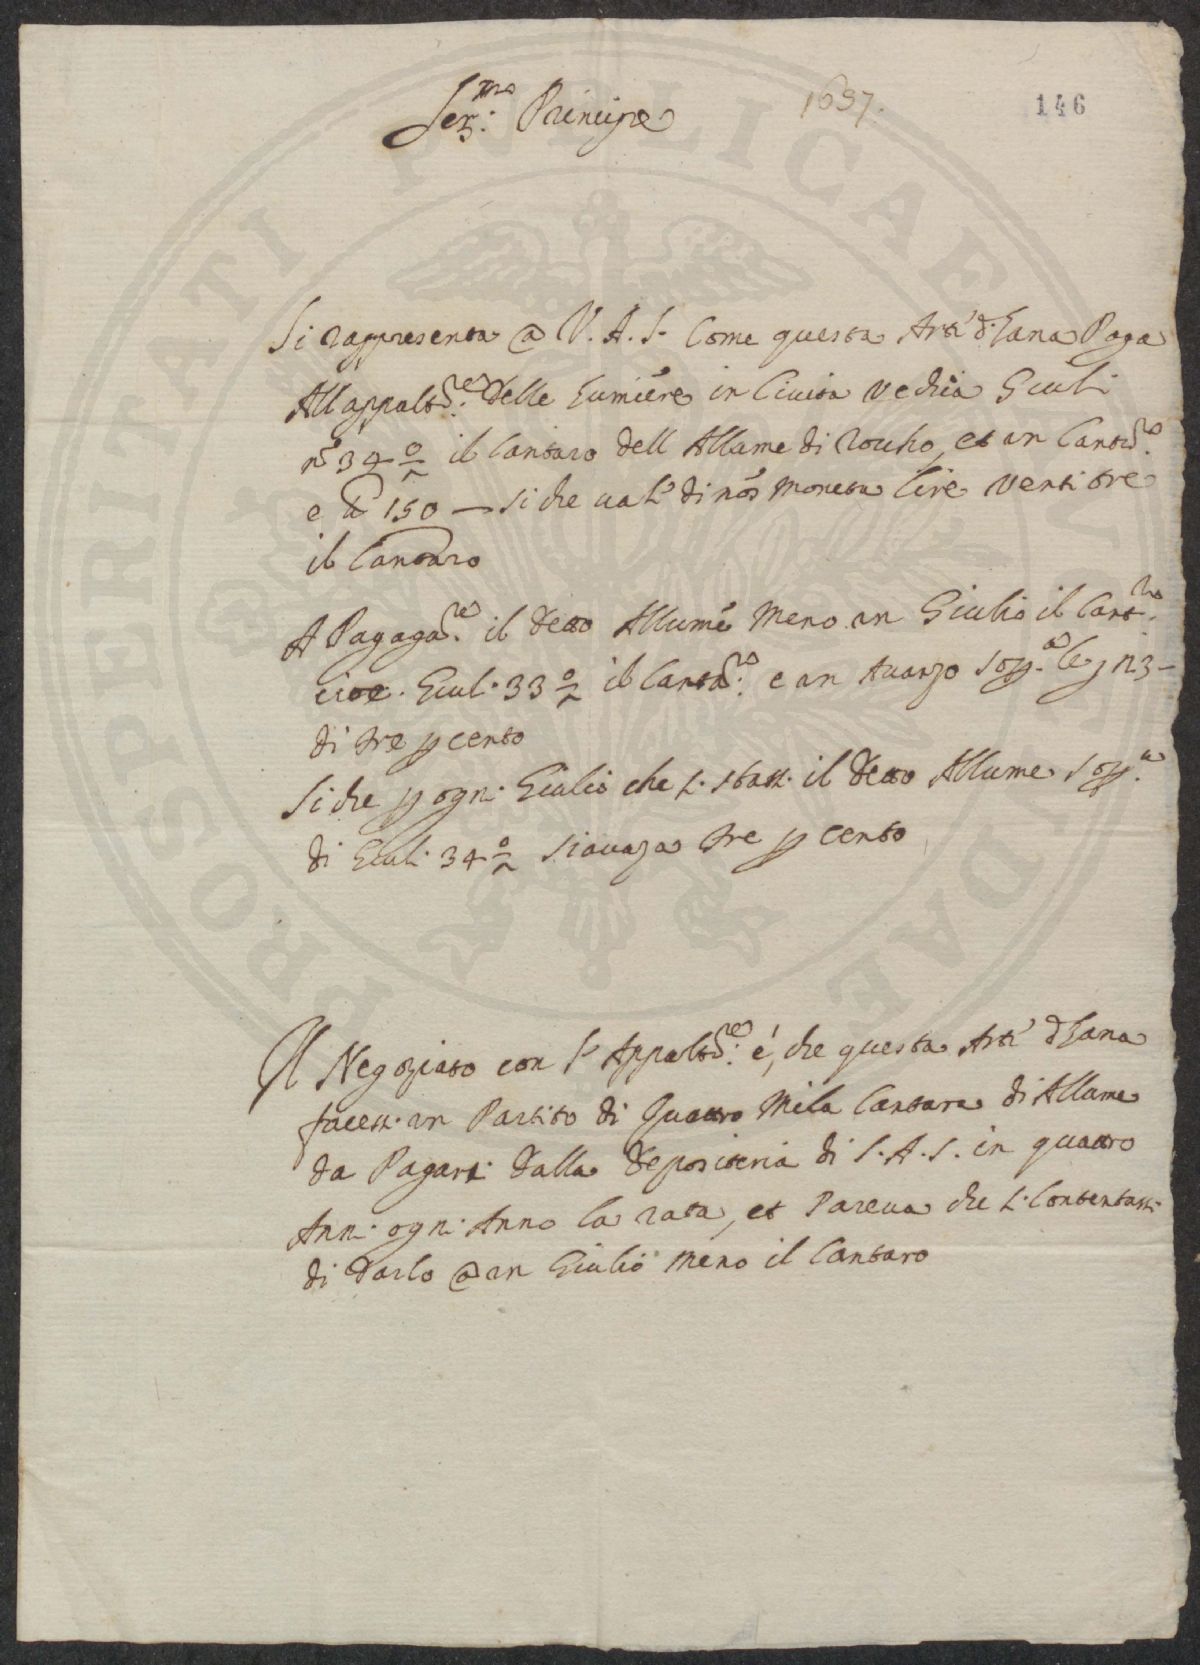 Ser.mo Principe
1637.
146
Si rappresenta @ V. A. S. Come questa Arte d. Lana Paga
All appaltore delle Lumiere in Ciuita Vechia Giuli
no 34 il Cantaro dell Allume di Roccho, et un Cantro
e lb 150 — si che val di nos moneta lire ventitre
il Cantaro
A Pagaga.re il detto Allume meno un Giulio il Cant.ro
cioe. Giul. 33 il Canta.ro e un Auanzo sop.a le
di tre p cento
Si che p ogni Giulio che s. sbass. il detto Allume sop.a
di Giul. 34 si auaza tre p cento
Il Negoziato con l'Appaltre é, che questa Arte d Lana
facess. un Partito di Quattro Mila Cantara di Allume
da Pagars. dalla depositeria di S. A. S. in quattro
Ann. ogn. Anno la rata, et Pareua che s. Contentass.
di darlo @ un Giulio meno il Cantaro
PROSPERITATI PVBLICAE